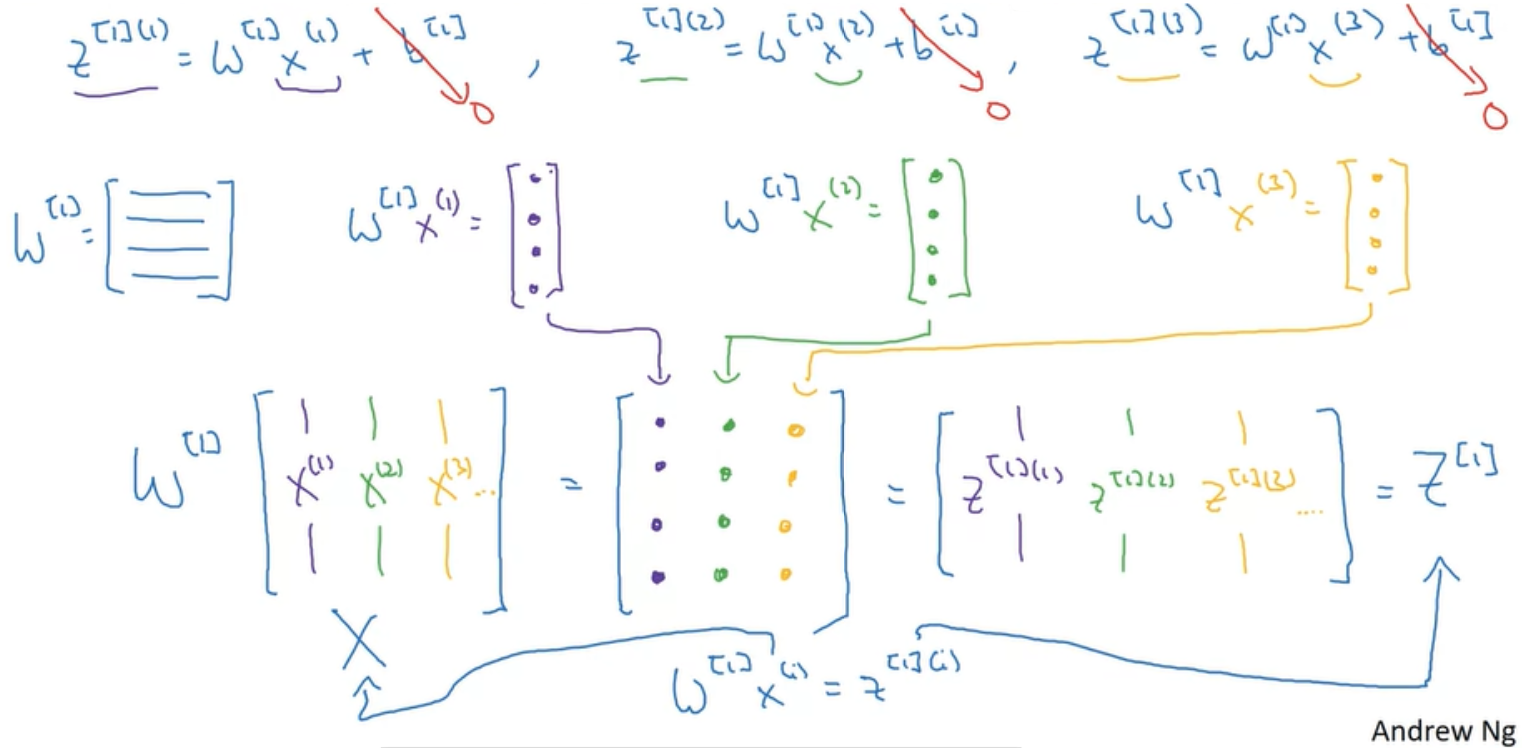 z^{[1](1)} = W^{[1]} x^{(1)} + b^{[1]} , z^{[1](2)} = W^{[1]} x^{(2)} + b^{[1]} , z^{[1](3)} = W^{[1]} x^{(3)} + b^{[1]}
0 0 0
W^{[1]} = [ ] W^{[1]} x^{(1)} = [ ] W^{[1]} x^{(2)} = [ ] W^{[1]} x^{(3)} = [ ]
W^{[1]} [ x^{(1)} x^{(2)} x^{(3)} ... ] = [ ] = [ z^{[1](1)} z^{[1](2)} z^{[1](3)} .... ] = Z^{[1]}
X
W^{[1]} x^{(i)} = z^{[1](i)}
Andrew Ng